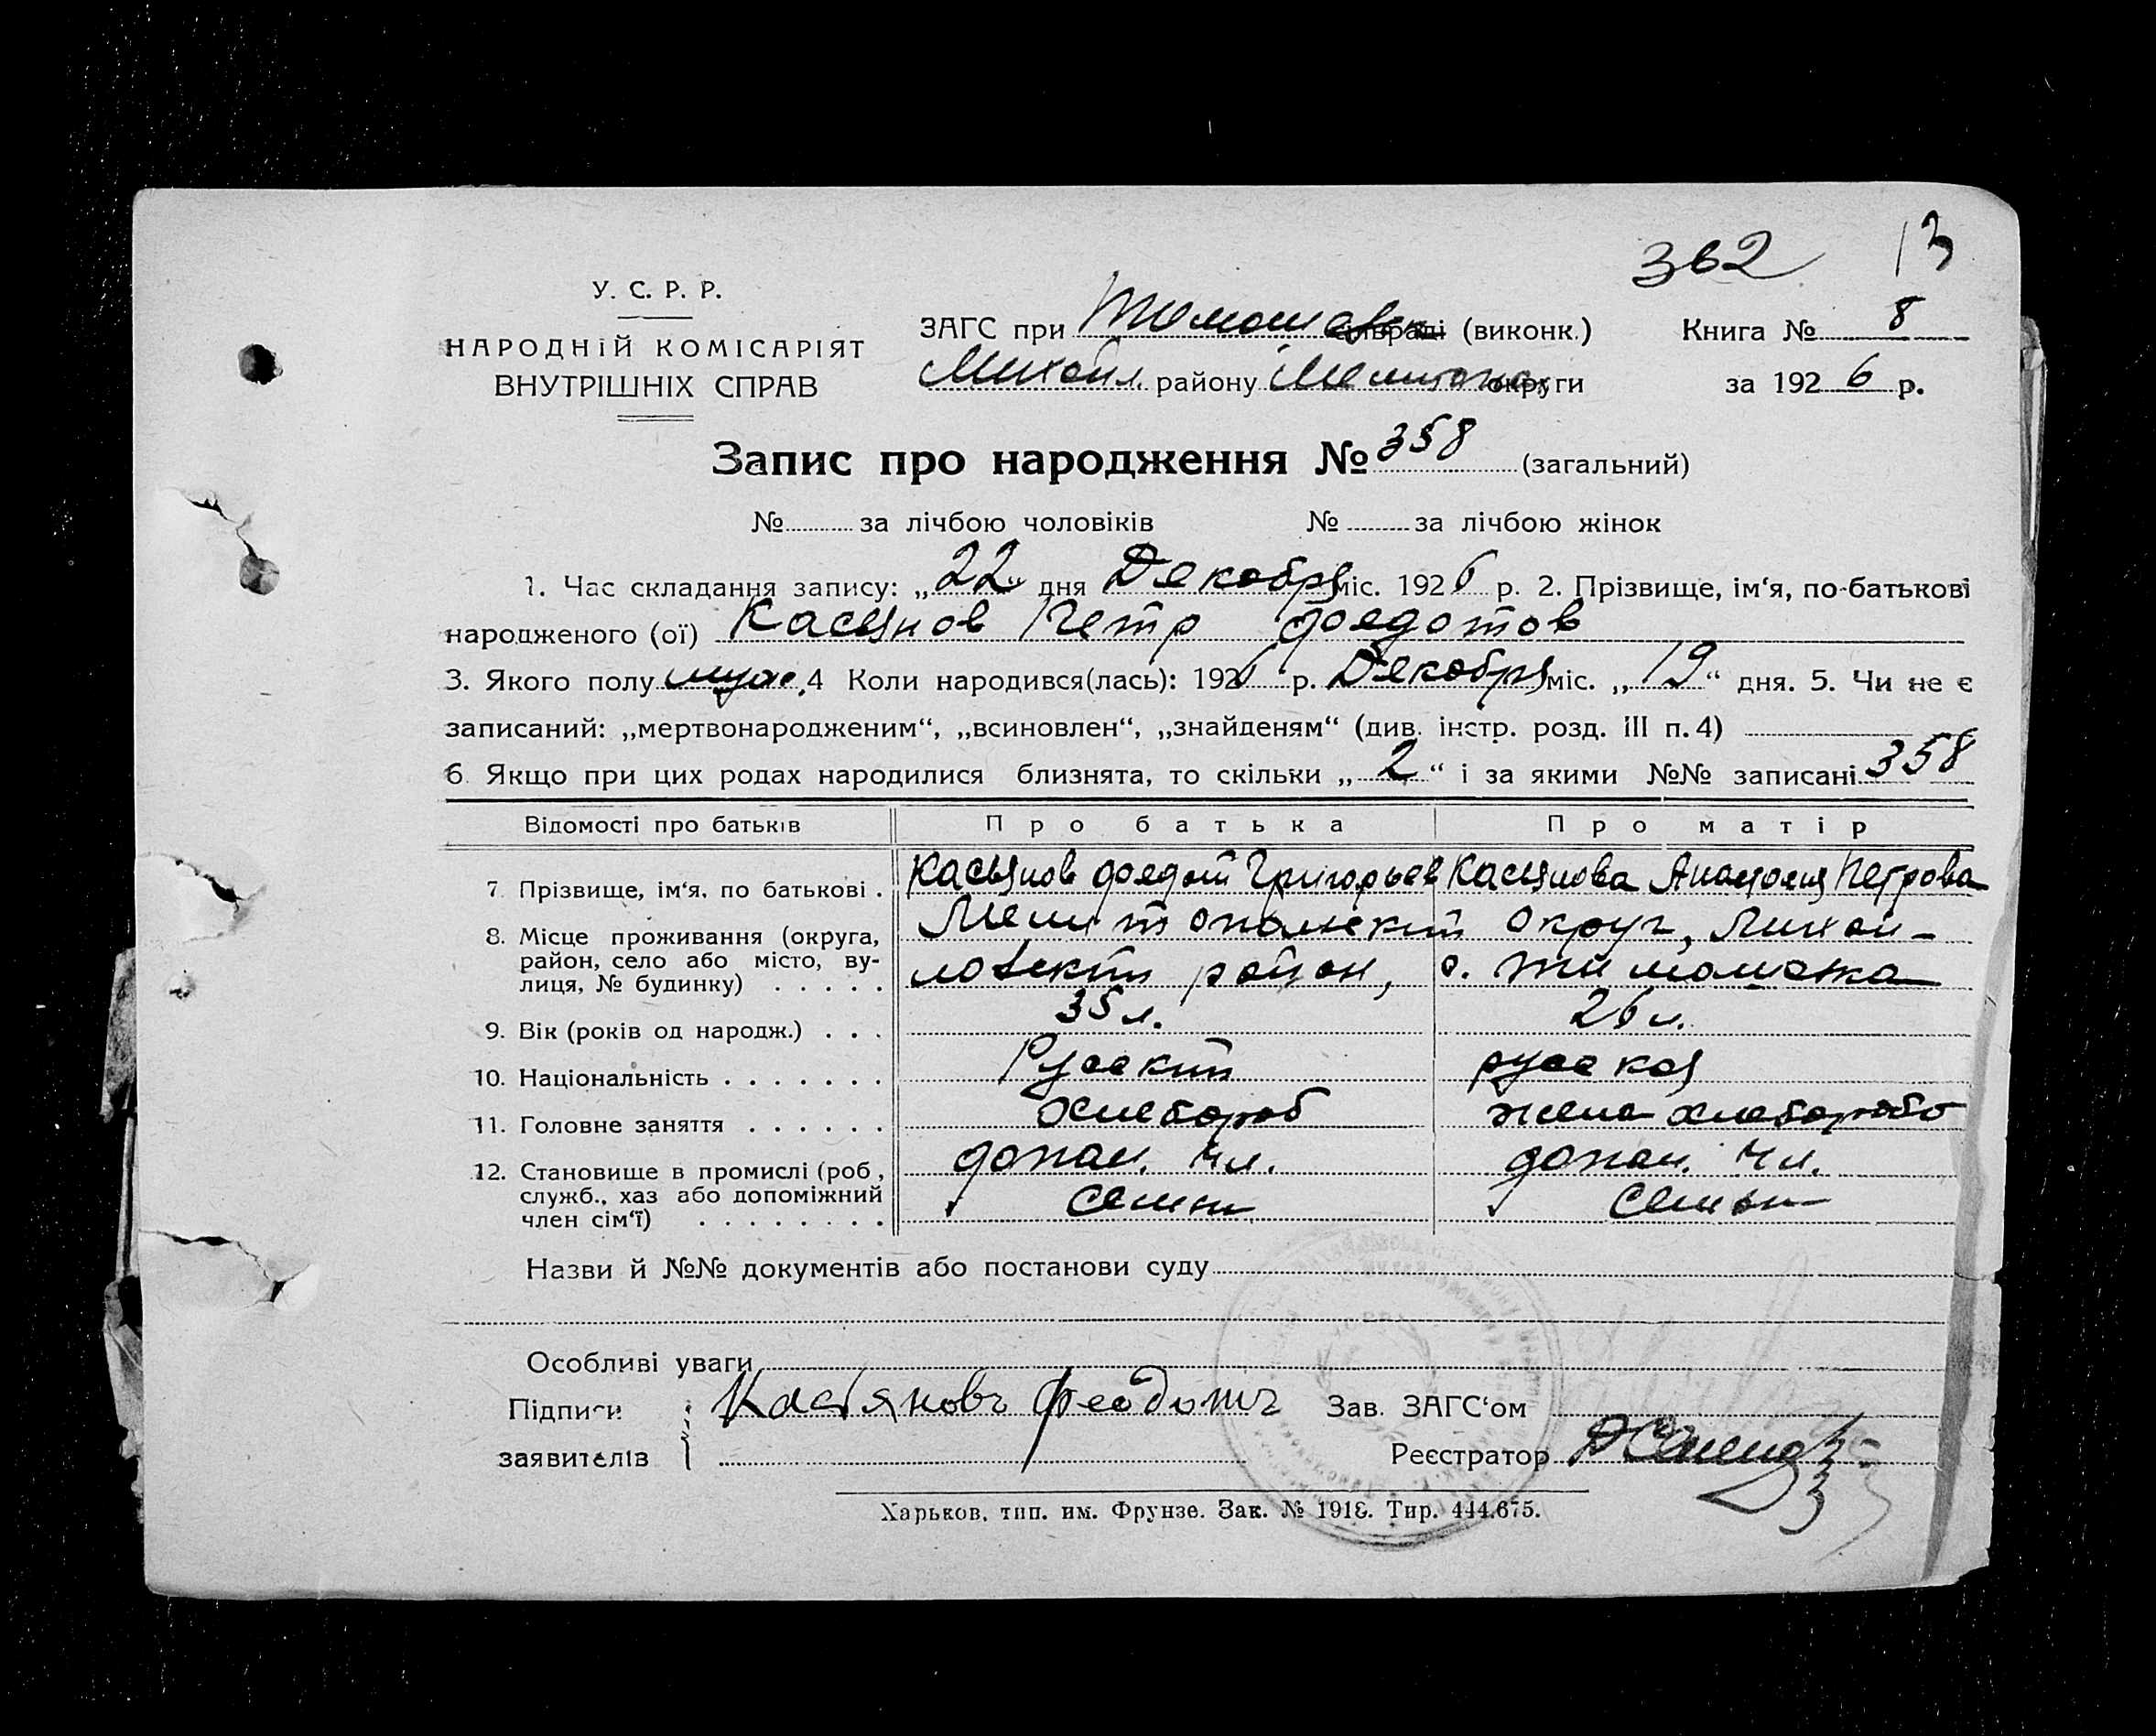 362 13
У. С. Р. Р.
НАРОДНІЙ КОМІСАРІЯТ
ВНУТРІШНІХ СПРАВ
ЗАГС при Тимошевск (виконк.)
Михайл. району Мелитопол округи
Книга № 8
за 1926 р.
Запис про народження № 358 (загальний)
№ за лічбою чоловіків № за лічбою жінок
1. Час складання запису: „22“ дня Декабря міс. 1926 р. 2. Прізвище, ім‘я, по-батькові
народженого (ої) Касьянов Петр Федотов
3. Якого полу муж. 4 Коли народився(лась): 1926 р. Декабря міс. „19“ дня. 5. Чи не є
записаний: „мертвонародженим“, „всиновлен“, „знайденям“ (див. інстр. розд. III п. 4)
6. Якщо при цих родах народилися близнята, то скільки „2“ і за якими №№ записані 358
Відомості про батьків Про батька Про матір
7. Прізвище, ім‘я, по батькові . Касьянов Федот Григорьев Касьянова Анастасия Петрова
8. Місце проживання (округа, Мелитопольский округ, Михай-
район, село або місто, ву- ловский район, с. Тимошовка
лиця, № будинку) . . . . .
9. Вік (років од народж.) . . . 35 л. 26 л.
10. Національність . . . . . . . Русский русская
11. Головне заняття . . . . . . Хлебороб жена хлебороба
12. Становище в промислі (роб., допом. чл. допом. чл.
служб., хаз або допоміжний семьи семьи
член сім‘ї) . . . . . . . .
Назви й №№ документів або постанови суду
Особливі уваги
Підписи Касьяновъ Феодотъ Зав. ЗАГС‘ом
заявителів Реєстратор
Харьков, тип. им. Фрунзе. Зак. № 1918. Тир. 444.675.